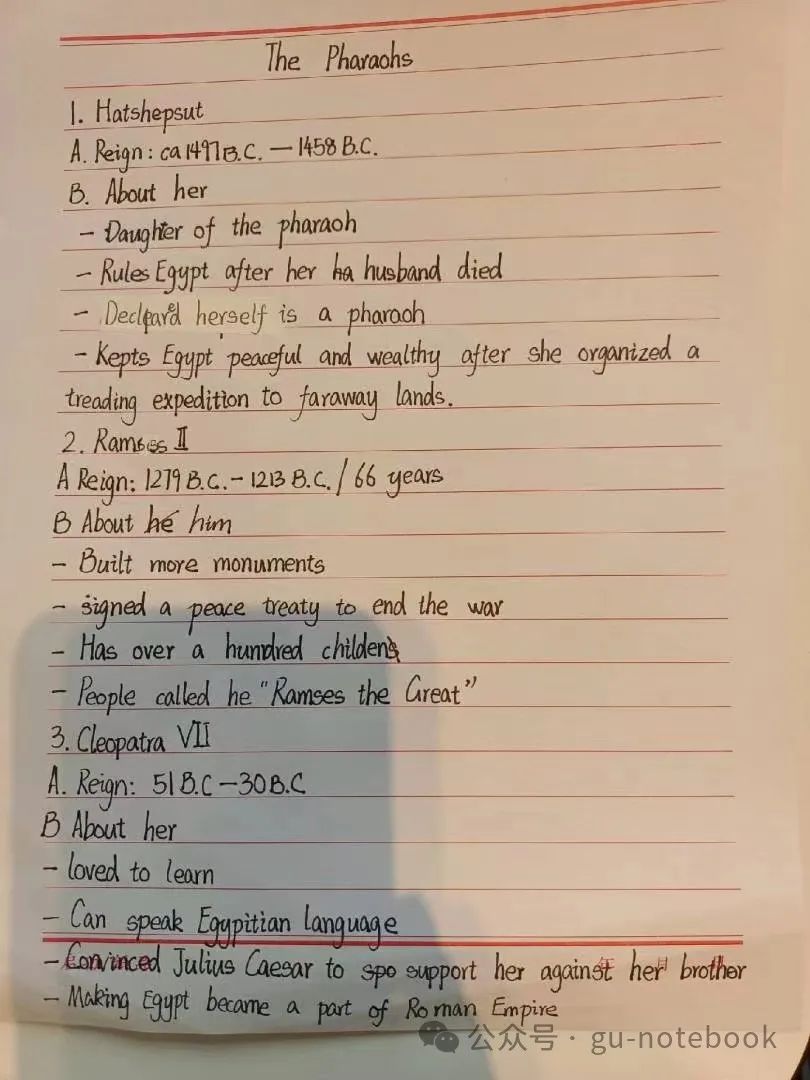 The Pharaohs
1. Hatshepsut
A. Reign: ca 1497 B.C. — 1458 B.C.
B. About her
- Daughter of the pharaoh
- Rules Egypt after her ha husband died
- Declear'd herself is a pharaoh
- Kepts Egypt peaceful and wealthy after she organized a
treading expedition to faraway lands.
2. Ramses II
A Reign: 1279 B.C. - 1213 B.C. / 66 years
B About he him
- Built more monuments
- signed a peace treaty to end the war
- Has over a hundred childen
- People called he "Ramses the Great"
3. Cleopatra VII
A. Reign: 51 B.C - 30 B.C
B About her
- loved to learn
- Can speak Egypitian language
- Convinced Julius Caesar to spo support her against her brother
- Making Egypt became a part of Roman Empire
公众号 · gu-notebook